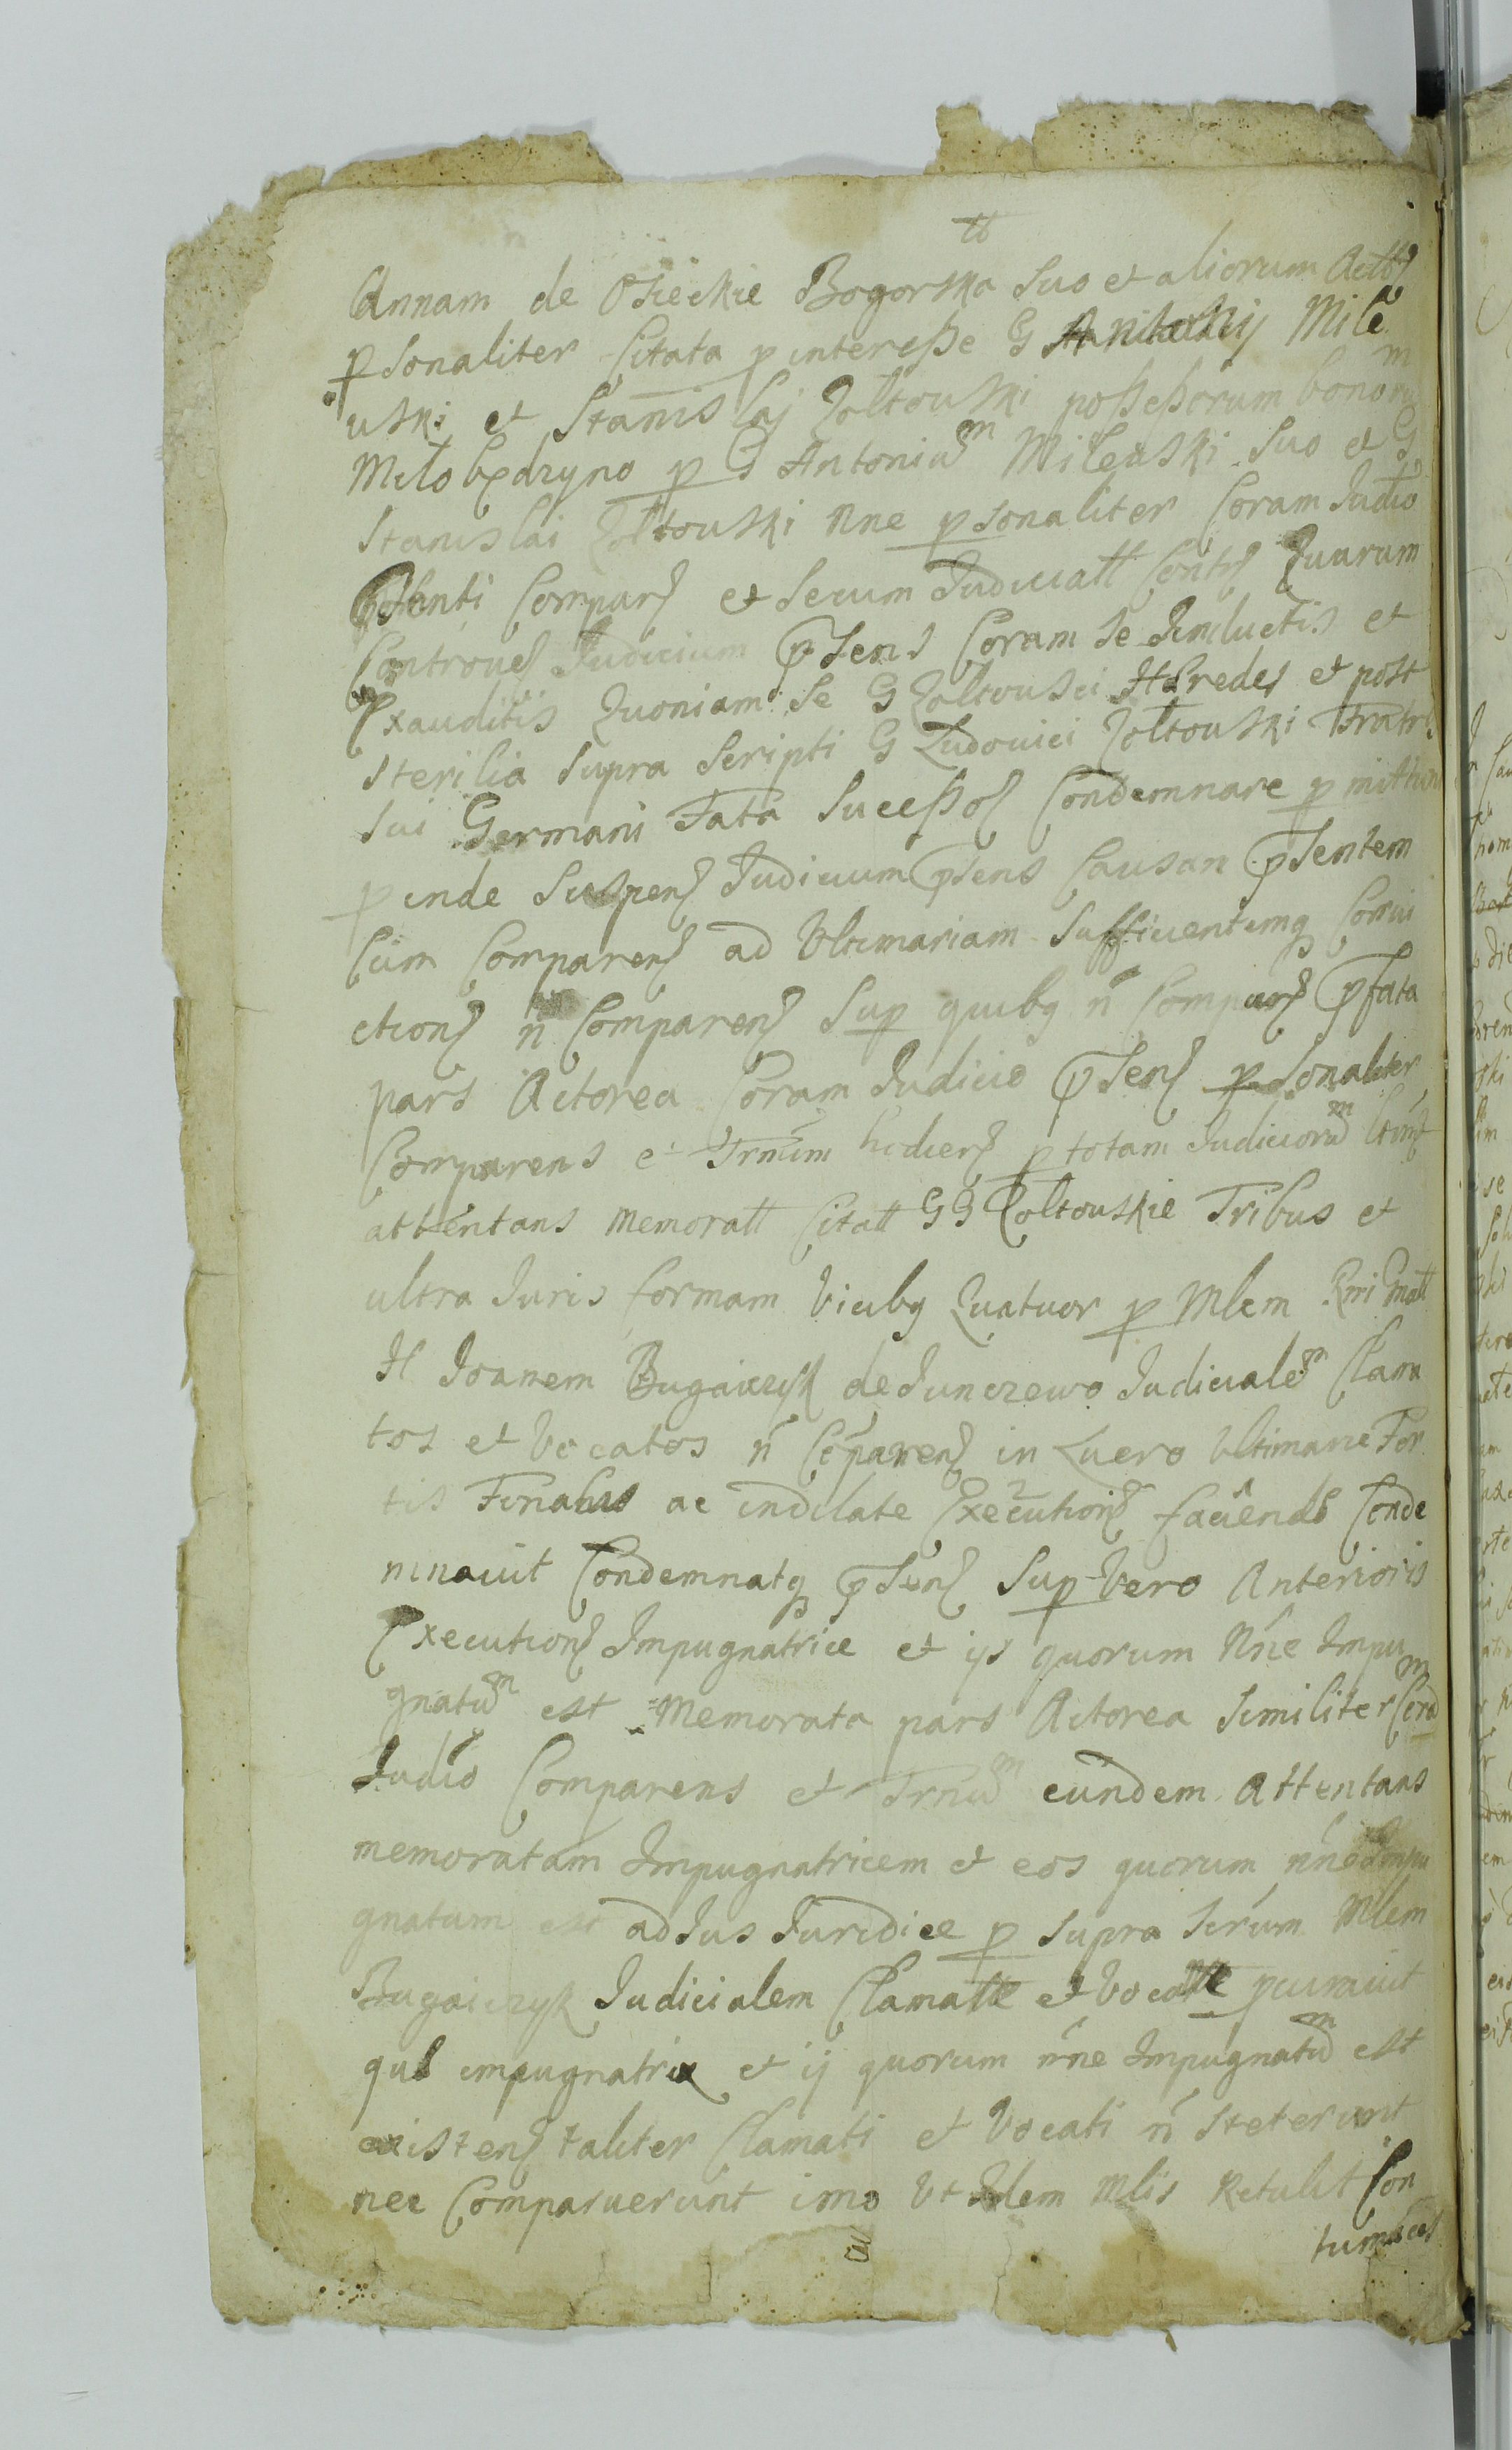 Annam de Osieckie Bogorska suo et aliorum Actt
psonaliter Citata p interesse G Antonij Mile
uski et Stanislaj Zoltouski possessorum bonorum
Milobędzyno p G Antonium Mileuski Suo et G
Stanislai Zoltouski nne psonaliter Coram Judio
psenti Compar et Secum Judiciatt Contr Quarum
Controues Judicium psens Coram se Inductis et
Exauditis Quoniam Se G Zoltousci Hæredes et post
Sterilia Supra Scripti G Ludouici Zoltouski Fratris
Sui Germani Fata Sucessor Condemnare pmittunt
pinde Suspens Judicium psens Causam psentem
Cum Comparen ad Ultimariam Sufficientemq Conui
ction n Comparen Sup quibg n Compar pfata
pars Actorea Coram Judicio psen psonaliter
Comparens et Trnum hodiern p totam Judiciorum
attentans memoratt Citatt GG Zoltouskie Tribus et
ultra Juris formam Vicibg Quatuor p Mlem Rni Gnatt
H Joannem Bugaiczyk de Junczewo Judicialem Clama
tos et Vocatos n Comparen in Lucro Ultimarie For
tis Finalis ac indilate Execution faciendo Conde
mnauit Condemnatq psen Sup Vero Anterioris
Execution Impugnatrice et ijs quorum Nne Impu
gnatum est Memorata pars Actorea Similiter Coram
Judio Comparens et Trnum eundem Attentans
memoratam Impugnatricem et eos quorum nne Impu
gnatum est ad Jus Juridice p Supra Scrum Mlem
Bugaiczyk Judicialem Clamatt et Vocatt pcurauit
que impugnatrix et ij quorum nne Impugnatum est
existen taliter Clamati et Vocati n Steterunt
nec Comparuerunt imo Ut Idem Mlis Retulit Con
tumaces